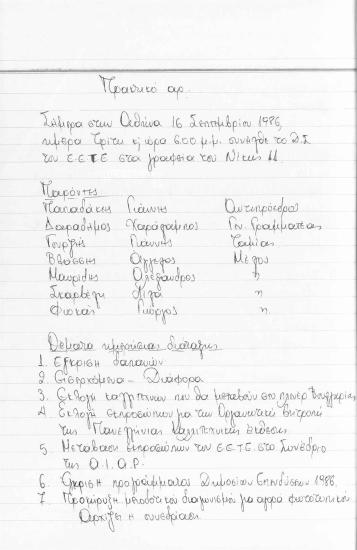 Πρακτικό αρ.
Σήμερα στην Αθήνα 16 Σεπτεμβρίου 1986,
ημέρα Τρίτη κ ώρα 6.00 μ.μ. συνήλθε το Δ.Σ
του Ε.Ε.Τ.Ε στα γραφεία του Νίκης 11.
Παρόντες
Παπαδάκης Γιάννης Αντιπρόεδρος
Δαραδήμος Χαράλαμπος Γεν. Γραμματέας
Γουρζής Γιάννης Ταμίας
Βλάσσης Άγγελος Μέλος
Μαυρίδης Αλέξανδρος "
Σκαρβέλη "
Φωκάς Γιώργος "
Θέματα ημερήσιας διάταξης
1. Έγκριση δαπανών
2. Εισερχόμενα - Διάφορα
3. Εκλογή καλλιτεχνών που θα μεταβούν στο πλενέρ Βουλγαρίας
4. Εκλογή εκπροσώπων για την Οργανωτική Επιτροπή
της Πανελλήνιας Καλλιτεχνικής Έκθεσης.
5. Μετάβαση εκπροσώπων του Ε.Ε.Τ.Ε. στο Συνέδριο
της Α.Ι.Α.Ρ.
6. Έγκριση προγράμματος Δημοσίων Επενδύσεων 1986.
7. Προκήρυξη μειοδοτικού διαγωνισμού για αγορά φωτοτυπικού
Αρχίζει η συνεδρίαση.